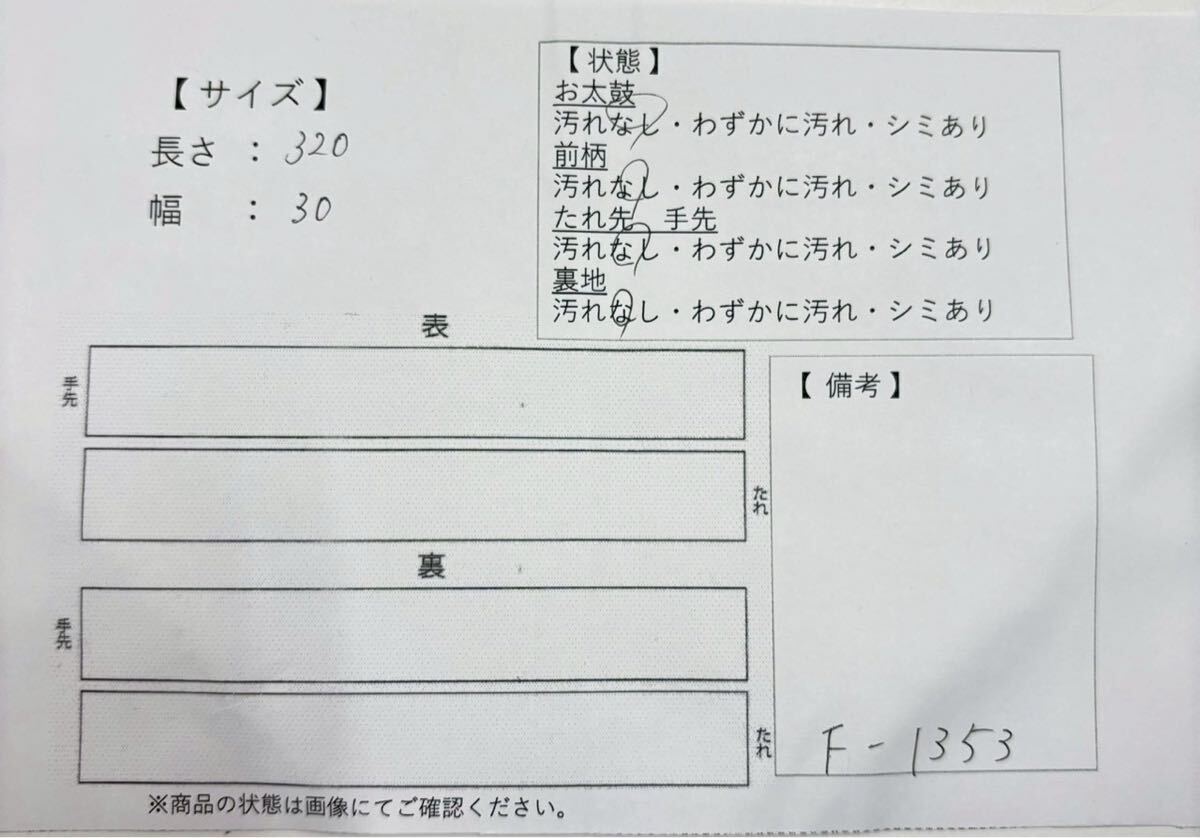 【 サイズ 】
長さ ： 320
幅 ： 30
【 状態 】
お太鼓
汚れなし・わずかに汚れ・シミあり
前柄
汚れなし・わずかに汚れ・シミあり
たれ先 手先
汚れなし・わずかに汚れ・シミあり
裏地
汚れなし・わずかに汚れ・シミあり
表
手先
たれ
裏
手先
たれ
【 備考 】
F-1353
※商品の状態は画像にてご確認ください。